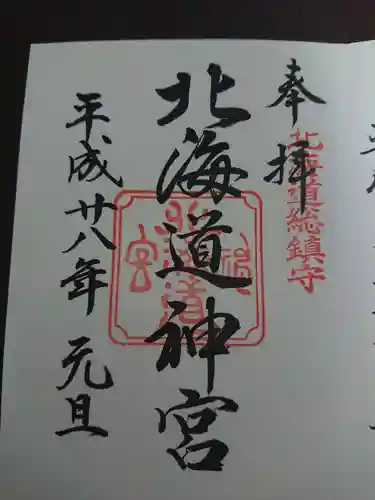 奉拝
北海道總鎮守
北海道神宮
平成廿八年元旦